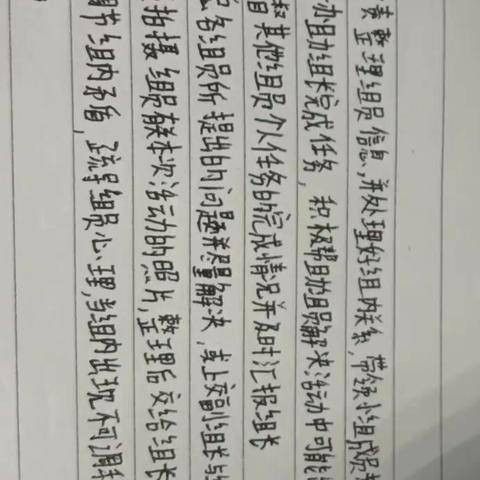 责整理组员信息,并处理好组内关系,带领小组成员
协助组长完成任务,积极帮助组员解决活动中可能
其他组员个人任务的完成情况并及时汇报组长
各组员所提出的问题并尽量解决,或上交副组长与
拍摄组员在本次活动的照片,整理后交给组长
调节组内矛盾,疏导组员心理,当组内出现不可调